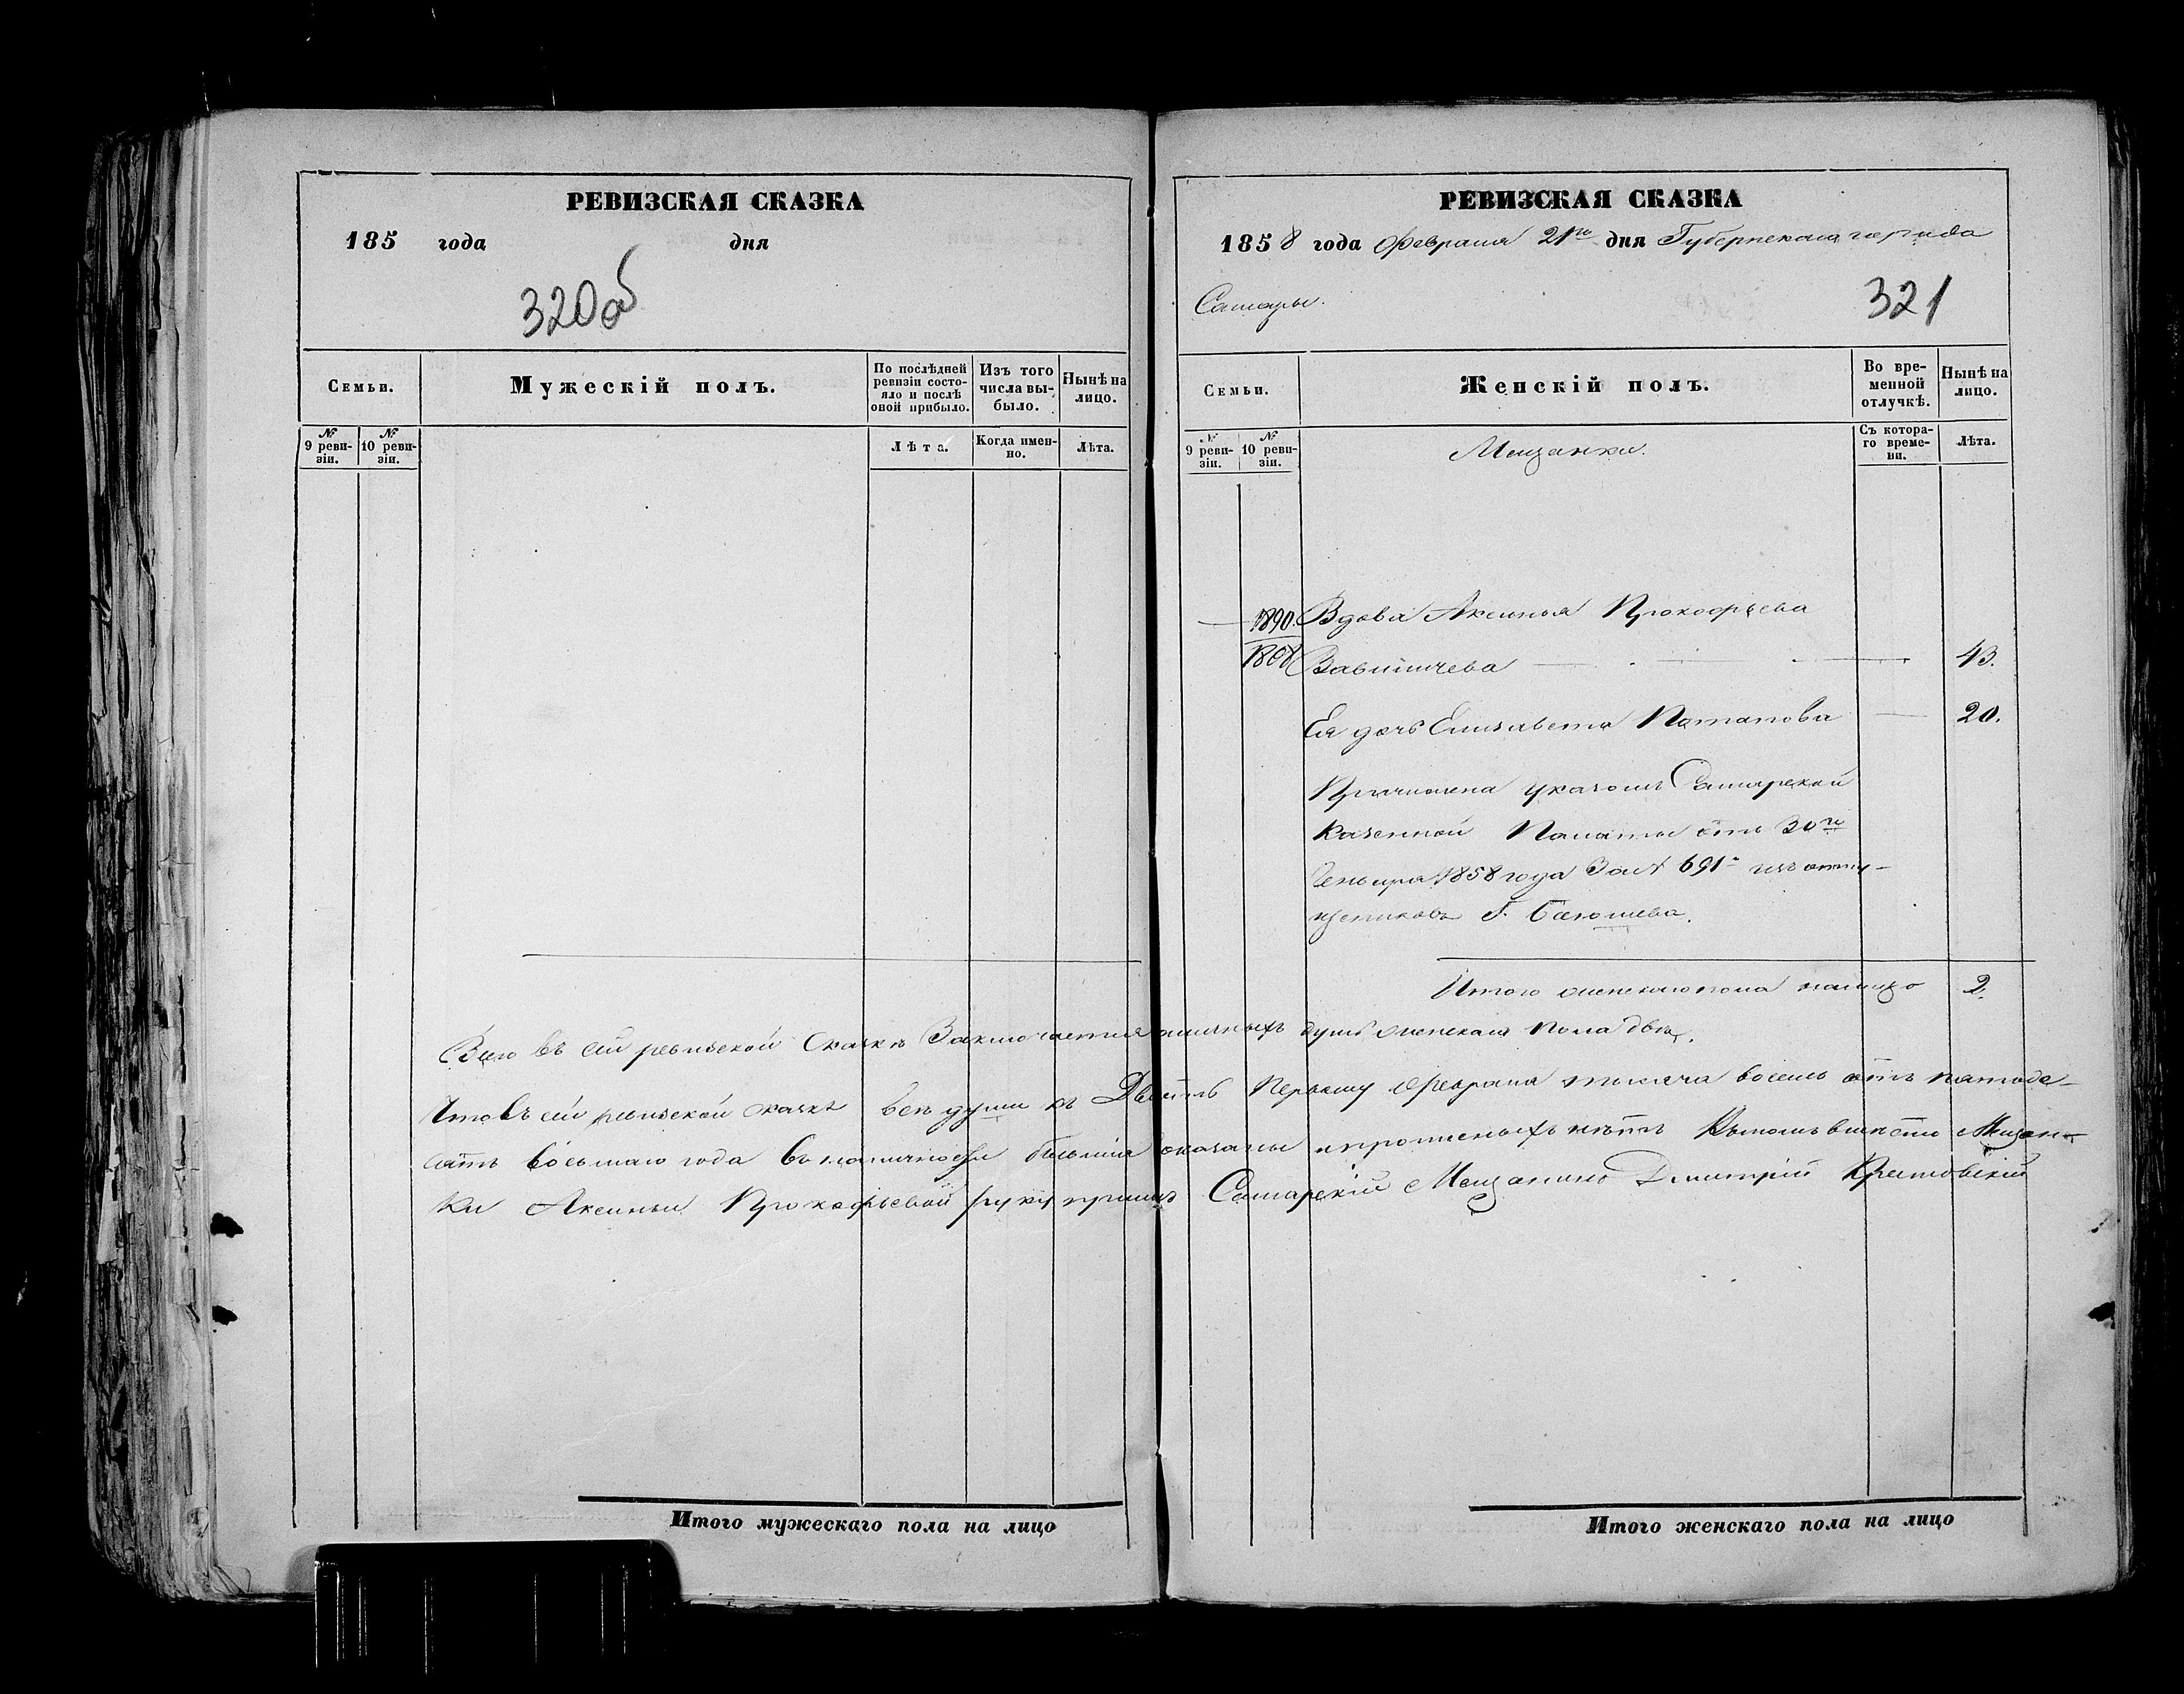 РЕВИЗСКАЯ СКАЗКА
185 года дня
320об
Семьи.
Мужескій полъ.
По послѣдней ревизіи состояло и послѣ оной прибыло.
Изъ того числа выбыло.
Нынѣ на лицо.
№ 9 ревизіи.
№ 10 ревизіи.
Лѣта.
Когда именно.
Лѣта.
РЕВИЗСКАЯ СКАЗКА
1858 года Февраля 21го дня Губернскаго города
Самары.
321
Семьи.
Женскій полъ.
Во временной отлучкѣ.
Нынѣ на лицо.
№ 9 ревизіи.
№ 10 ревизіи.
Мещанки.
Съ котораго времени.
Лѣта.
1890. Вдова Аксинья Прокофьева
1868 43.
Ея дочь Елизавета Потапова 20.
Причислена указомъ Самарской
Казенной Палаты отъ 30го
Генваря 1858 года За № 691 изъ отпу-
щенниковъ Г.
Итого женскаго пола налицо 2.
Всего въ сей ревизской Сказкѣ Заключается наличныхъ душъ женскаго пола двѣ.
Что въ сей ревизской сказкѣ всѣ души къ Двадцать Первому Февраля тысяча восемь сотъ пятьде-
сятъ восьмаго года въ наличности бывшія показаны и прописныхъ нѣтъ Въ томъ вмѣсто Мещан-
ки Аксиньи Прокофьевой руку приложилъ Самарскій Мещанинъ Дмитрій
Итого мужескаго пола на лицо
Итого женскаго пола на лицо